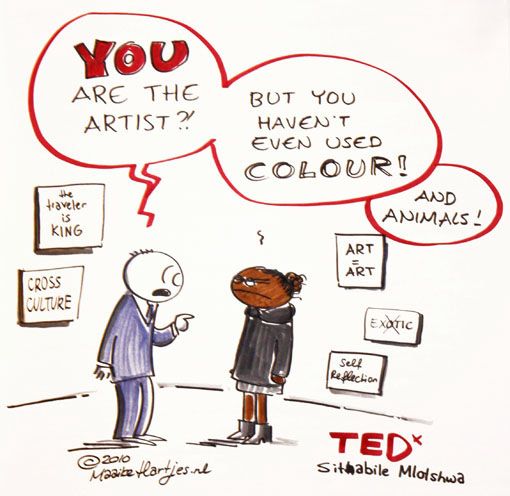 YOU
ARE THE
ARTIST?!
BUT YOU
HAVEN'T
EVEN USED
COLOUR!
AND
ANIMALS!
the
traveler
is
KING
CROSS
CULTURE
ART
=
ART
EXOTIC
Self
Reflection
©2010
MaaikeHartjes.nl
TEDx
Sithabile Mlotshwa